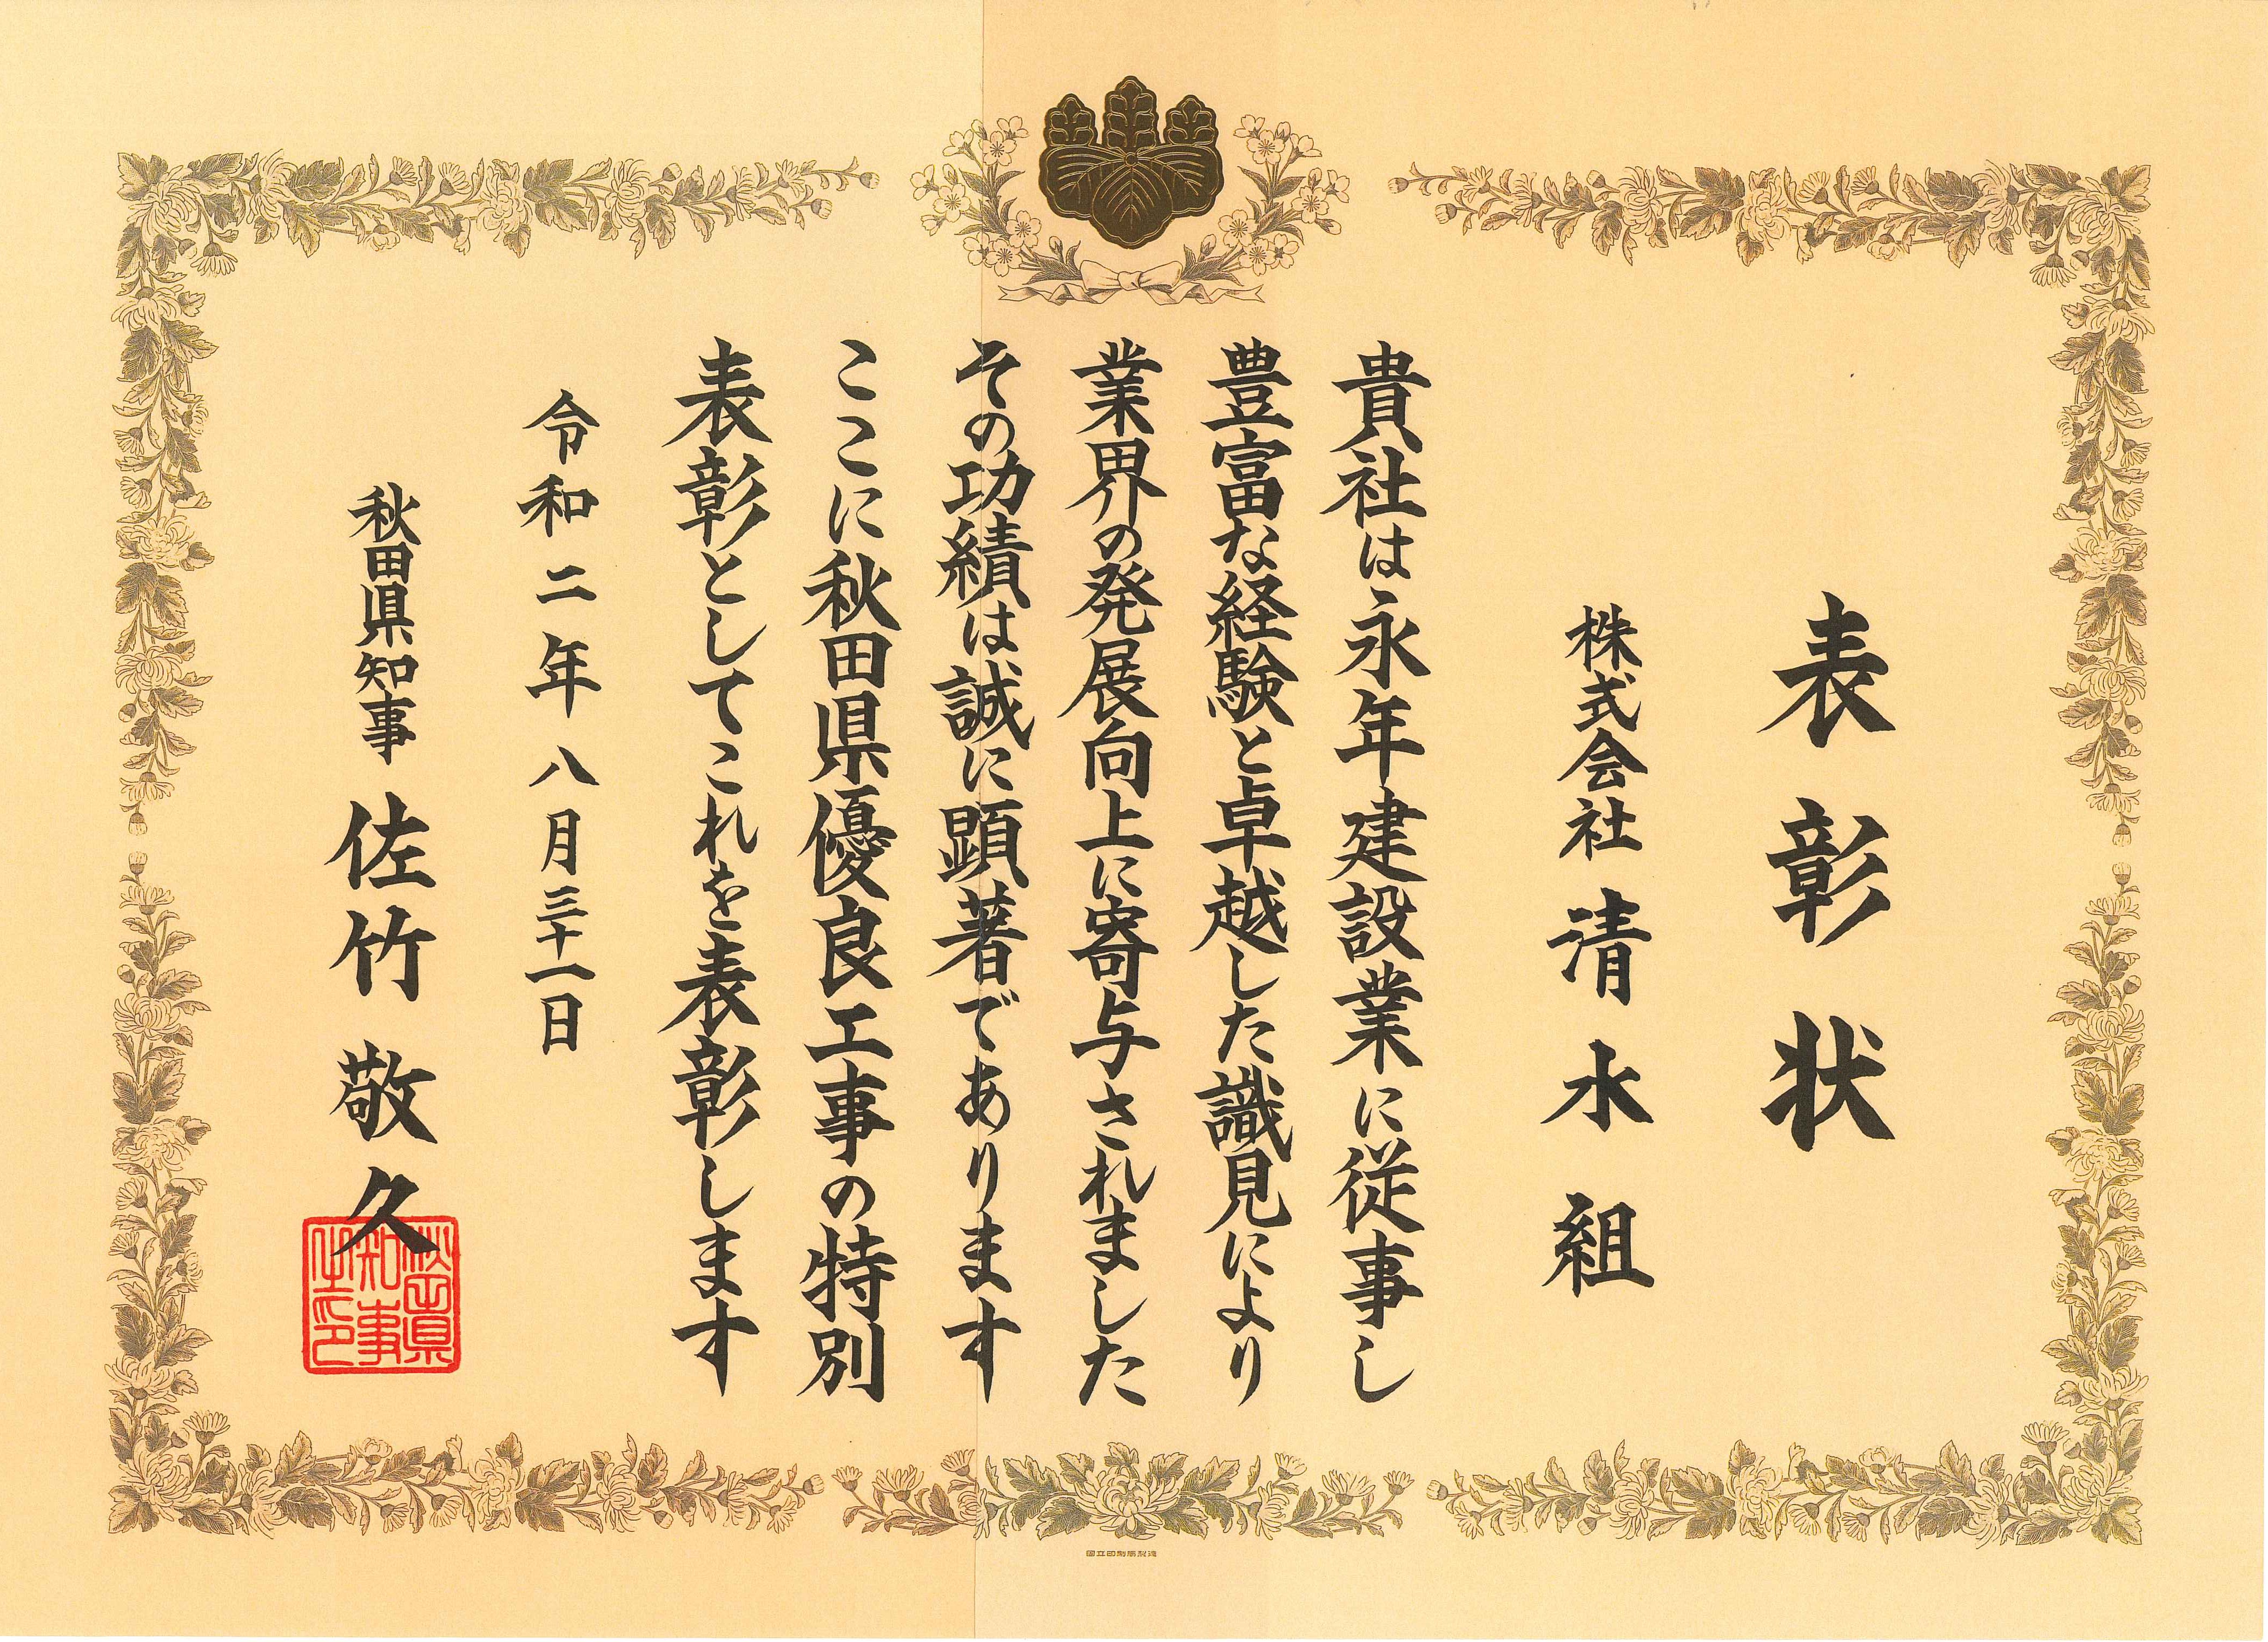 表彰状
株式会社 清水組
貴社は永年建設業に従事し
豊富な経験と卓越した識見により
業界の発展向上に寄与されました
その功績は誠に顕著であります
ここに秋田県優良工事の特別
表彰としてこれを表彰します
令和二年八月三十一日
秋田県知事 佐竹敬久
秋田県知事之印
国立印刷局製造